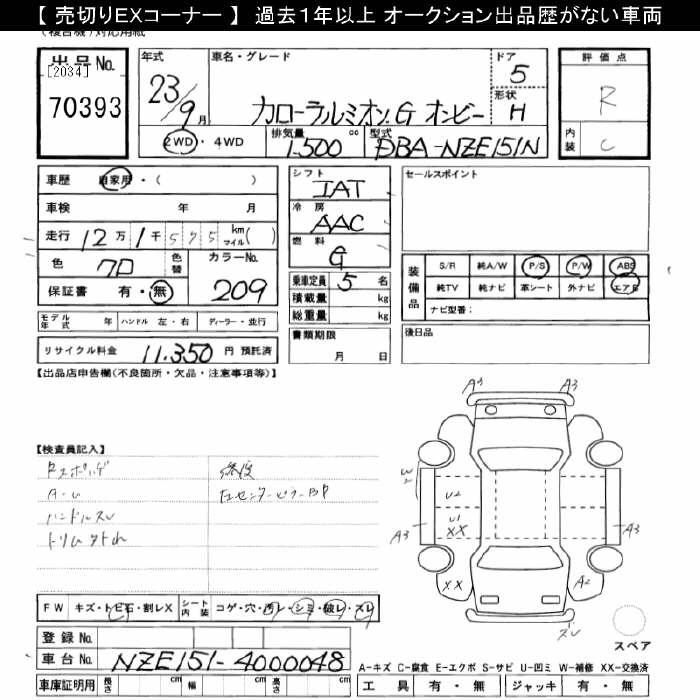 【 売切りEXコーナー 】 過去1年以上 オークション出品歴がない車両
(複合機)対応用紙
出品No. [2034] 70393
年式 23/9月
車名・グレード カローラルミオン.G オンビー
ドア 5
形状 H
2WD・4WD
排気量 1,500 cc
型式 DBA-NZE151N
評価点 R
内装 C
車歴 自家用・( )
車検 年 月
走行 12万1千575 km マイル( )
色 クロ 色替 カラーNo. 209
保証書 有・無
モデル年式 年 ハンドル 左・右 ディーラー・並行
リサイクル料金 11,350 円 預託済
シフト IAT
冷房 AAC
燃料 G
乗車定員 5 名
積載量 kg
総重量 kg
書類期限
月 日
セールスポイント
装備品
S/R 純A/W P/S P/W ABS
純TV 純ナビ 革シート 外ナビ エアB
ナビ型番:
後日品
【出品店申告欄(不良箇所・欠品・注意事項等)】
【検査員記入】
ハンドルスレ
トリム外れ
A3 A3
W2
U2
U1
XX
A3 A3
XX A2
スレ
スペア
FW キズ・トビ石・割レX シート内装 コゲ・穴・汚レ・シミ・破レ・スレ
登録No.
車台No. NZE151-4000048
車庫証明用 長さ cm 幅 cm 高さ cm
A-キズ C-腐食 E-エクボ S-サビ U-凹ミ W-補修 XX-交換済
工具 有・無 ジャッキ 有・無